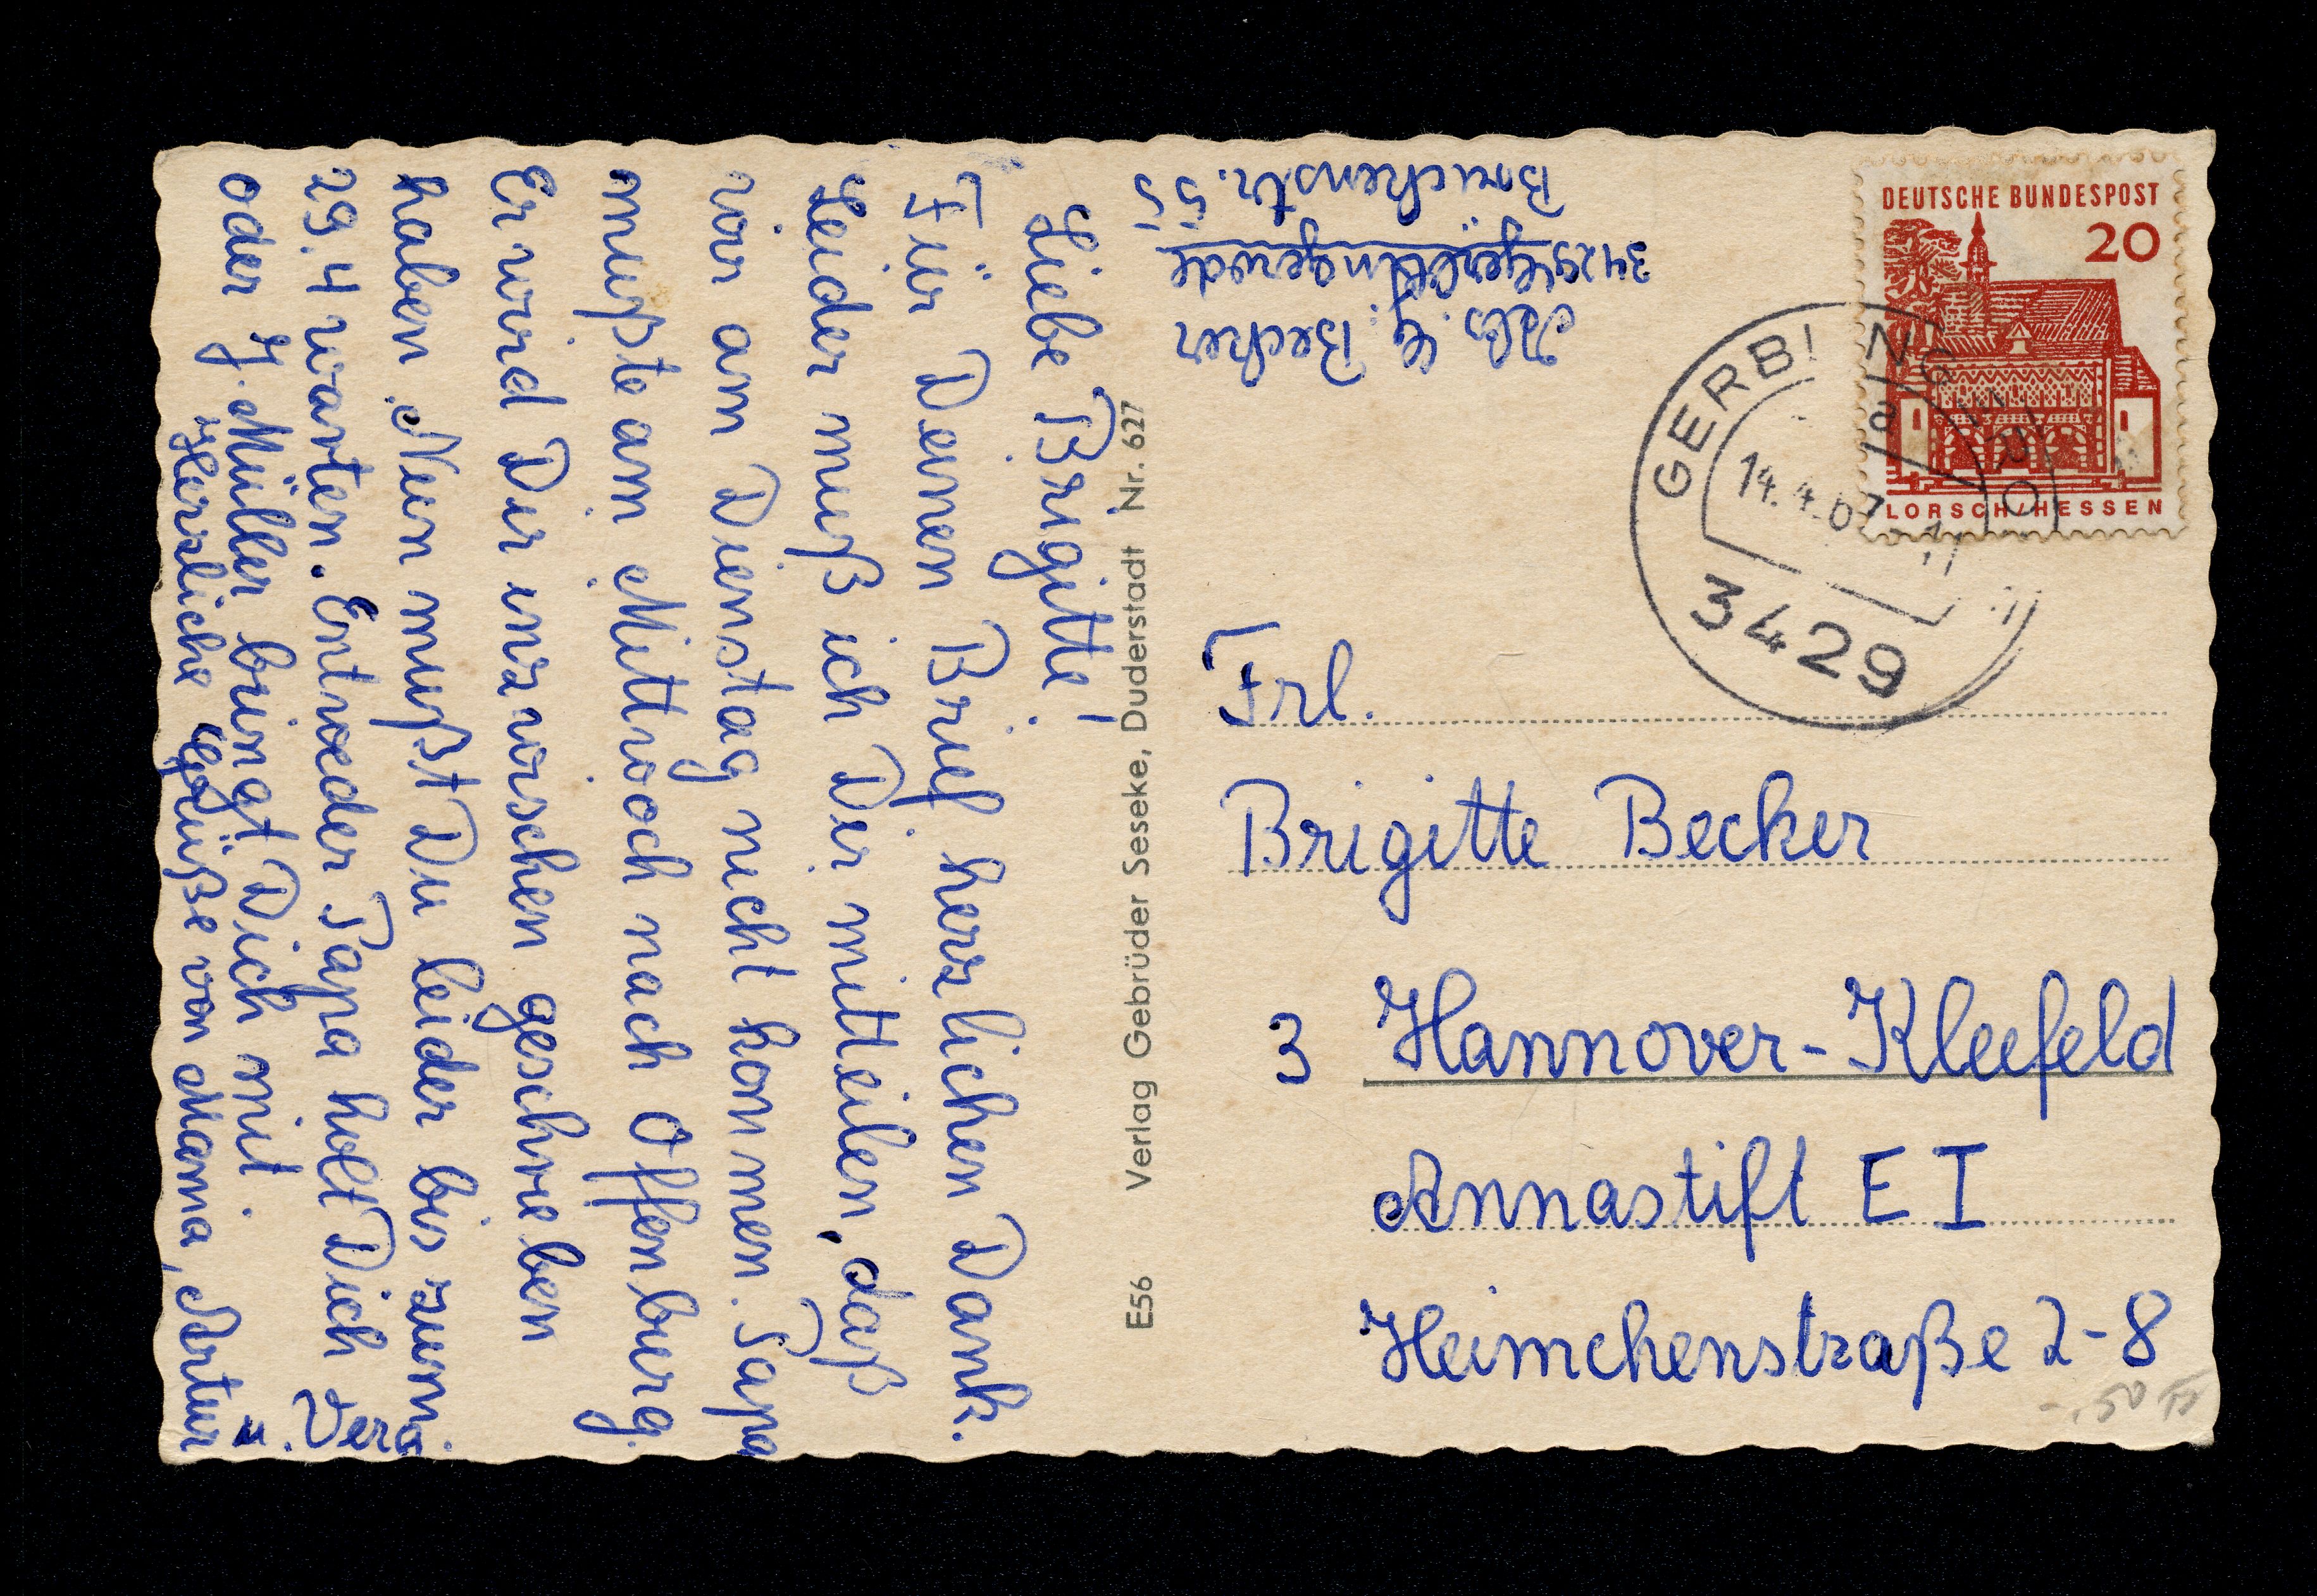 Liebe Brigitte!
Für Deinen Brief herzlichen Dank.
Leider muß ich Dir mitteilen, daß
wir am Dienstag nicht kommen. Papa
mußte am Mittwoch nach Offenburg.
Er wird Dir inzwischen geschrieben
haben. Nun mußt Du leider bis zum
29. 4 warten. Entweder Papa holt Dich
oder J. Müller bringt Dich mit.
Herzliche Grüße von Mama, Artur
u. Vera.
E56 Verlag Gebrüder Seseke, Duderstadt Nr. 627
Abs. G. Becker
3429 Gerblingerode
Breichenstr. 55
DEUTSCHE BUNDESPOST
20
LORSCH/HESSEN
GERBLINGERODE
a
14.4.67
3429
Frl.
Brigitte Becker
3 Hannover-Kleefeld
Annastift E I
Heimchenstraße 2-8
-.50